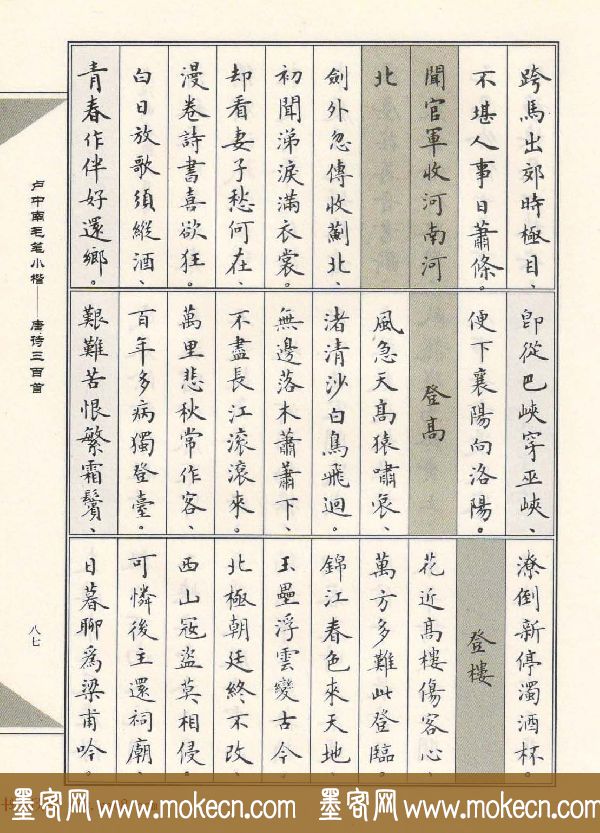 跨馬出郊時極目、
不堪人事日蕭條。
聞官軍收河南河
北
劍外忽傳收薊北、
初聞涕淚滿衣裳。
却看妻子愁何在、
漫卷詩書喜欲狂。
白日放歌須縱酒、
青春作伴好還鄉。
即從巴峽穿巫峽、
便下襄陽向洛陽。
登高
風急天高猿嘯哀、
渚清沙白鳥飛迴。
無邊落木蕭蕭下、
不盡長江滾滾來。
萬里悲秋常作客、
百年多病獨登臺。
艱難苦恨繁霜鬢、
潦倒新停濁酒杯。
登樓
花近高樓傷客心、
萬方多難此登臨。
錦江春色來天地、
玉壘浮雲變古今。
北極朝廷終不改、
西山寇盜莫相侵。
可憐後主還祠廟、
日暮聊爲梁甫吟。
卢中南毛笔小楷——唐诗三百首
八七
墨客网 www.mokecn.com 墨客网 www.mokecn.com